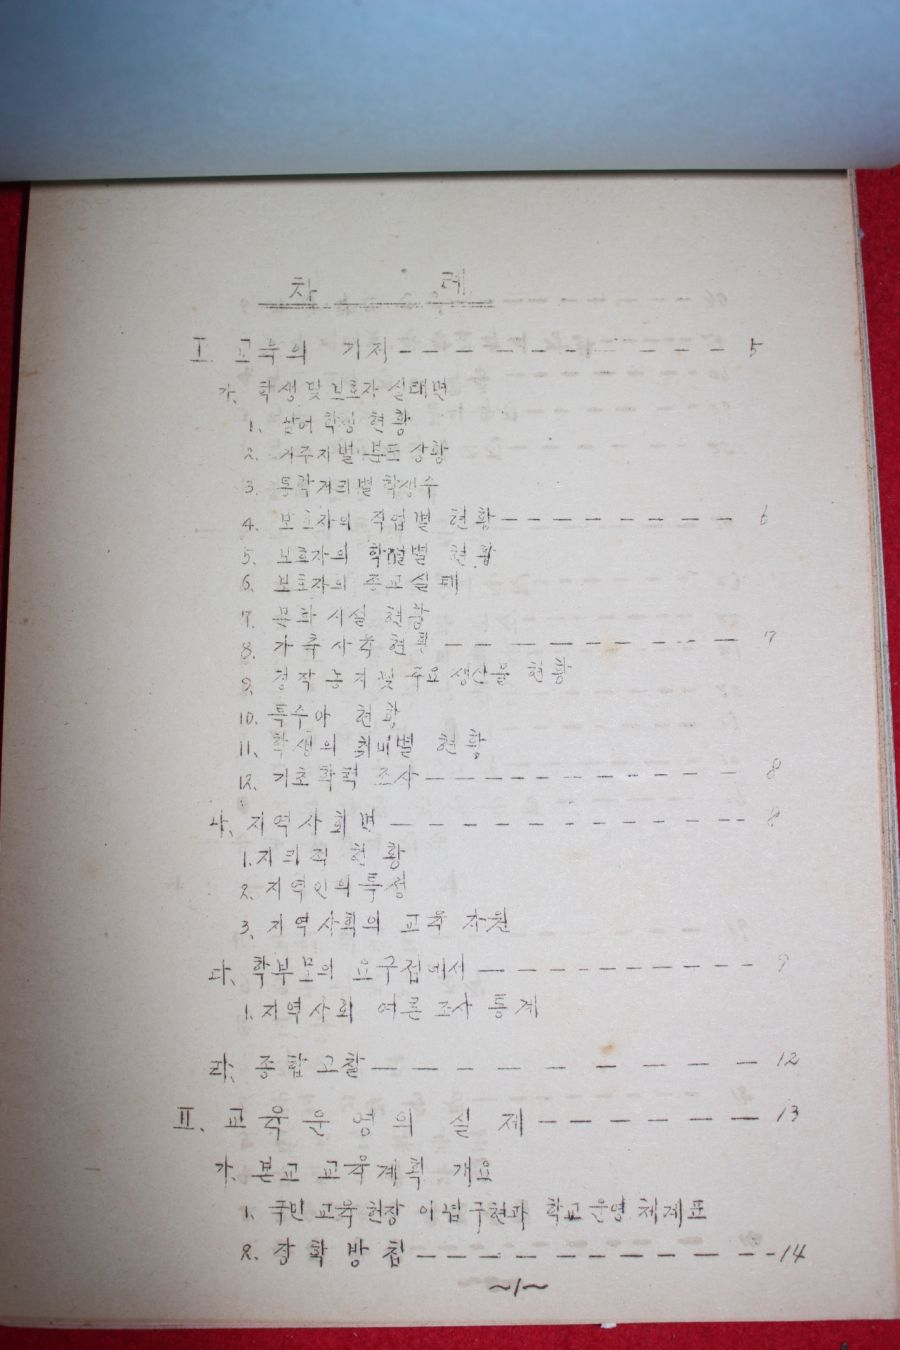 차 례
I. 교육의 기저 ------------ 5
가. 학생 및 보호자 실태면
1. 학년 학급 현황
2. 거주지별 분포 상황
3. 통학거리별 학생수
4. 보호자의 직업별 현황 -------- 6
5. 보호자의 학력별 현황
6. 보호자의 종교 실태
7. 문화 시설 현황
8. 가축 사육 현황 ---------- 7
9. 경작 농지 및 주요 생산물 현황
10. 특수아 현황
11. 학생의 취미별 현황
12. 기초학력 조사 ------------ 8
나. 지역사회면 -------------- 8
1. 지리적 현황
2. 지역인의 특성
3. 지역사회의 교육 자원
다. 학부모의 요구점에서 ---------- 9
1. 지역사회 여론 조사 통계
라. 종합고찰 ----------- 12
II. 교육 운영의 실제 -------- 13
가. 본교 교육계획 개요
1. 국민 교육 헌장 이념 구현과 학교 운영 체계표
2. 장학 방침 ------------- 14
~1~